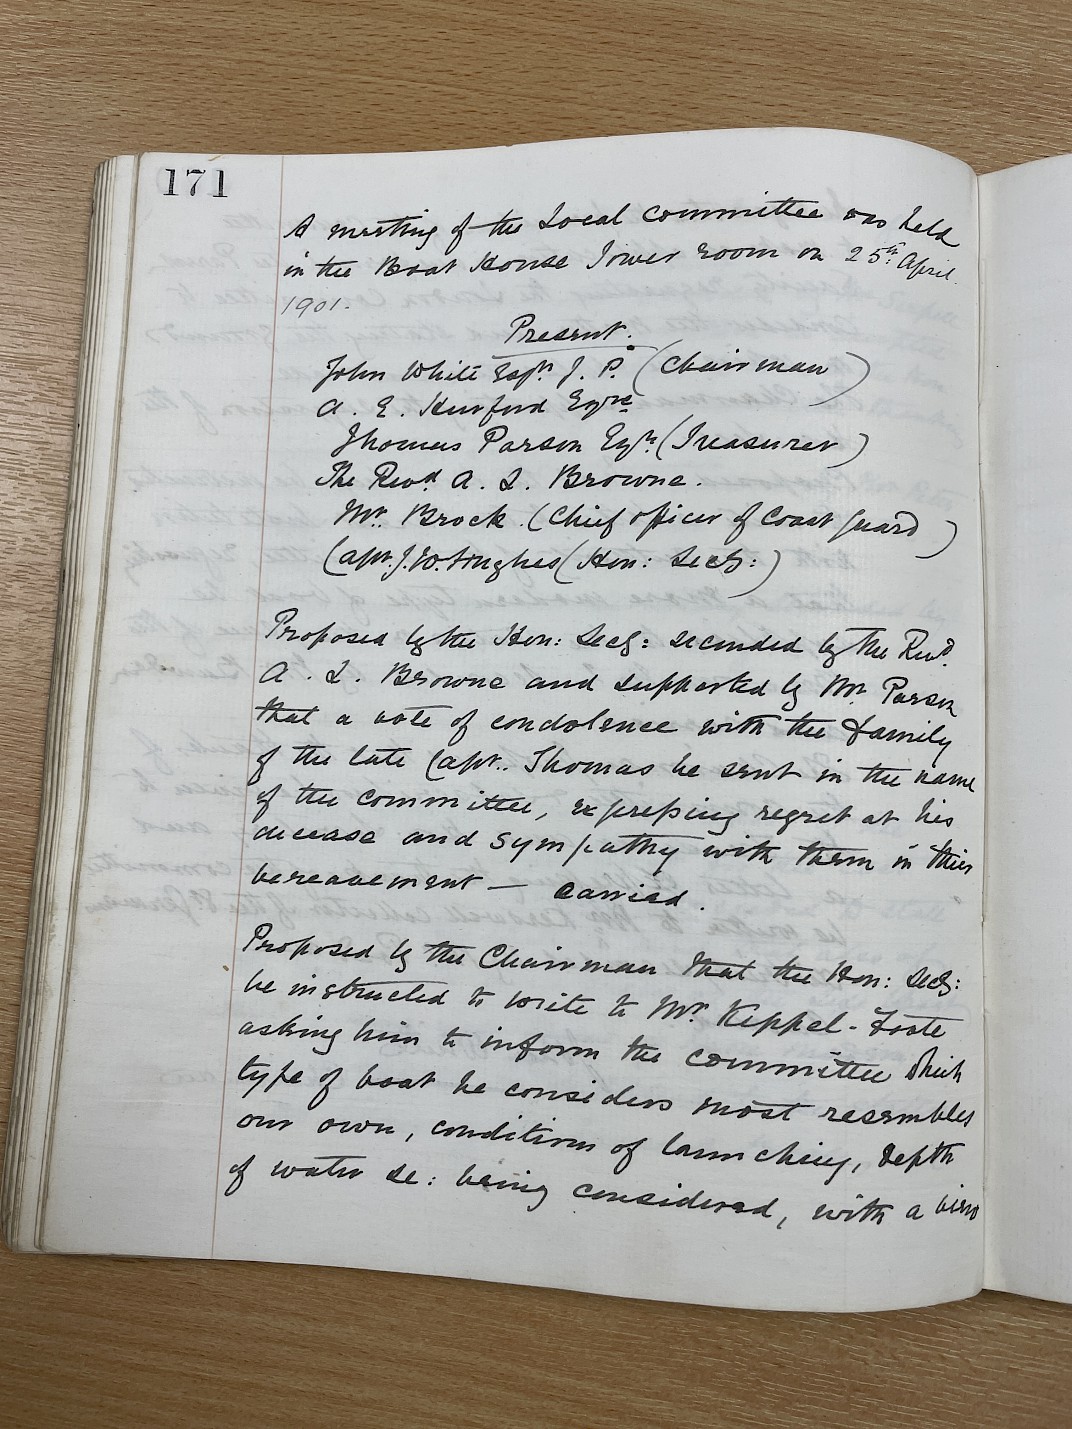 171
A meeting of the Local Committee was held
in the Boat House Tower room on 25th April.
1901.
Present.
John White Esqre. J. P. (Chairman)
A. E. Hurford Esqre
Thomas Parson Esqre. (Treasurer)
The Revd. A. L. Browne.
Mr. Brock. (Chief officer of Coast Guard)
Capt. J. W. Hughes (Hon: Secy:)
Proposed by the Hon: Secy: seconded by the Revd.
A. L. Browne and supported by Mr. Parson
that a vote of condolence with the family
of the late Capt.. Thomas be sent in the name
of the committee, expressing regret at his
decease and sympathy with them in their
bereavement — carried.
Proposed by the Chairman that the Hon: Secy:
be instructed to write to Mr. Keppel-Foote
asking him to inform the committee which
type of boat he considers most resembles
our own, conditions of launching, depth
of water &c: being considered, with a view